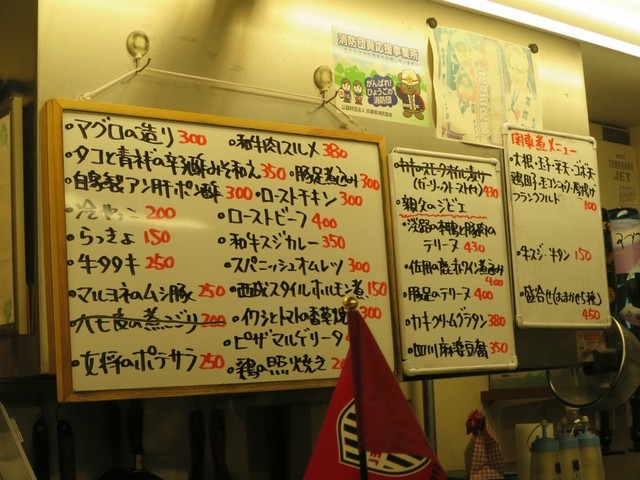 消防団員応援事業所
がんばれ!
ひょうごの
消防団
・マグロの造り 300
・タコと青柳の辛子酢みそ和え 350
・自家製アン肝ポン酢 300
・冷やっこ 200
・らっきょ 150
・牛タタキ 250
・マルヨネのムシ豚 250
の煮こごり 200
・女将のポテサラ 250
・和牛肉スルメ 380
・豚足煮込み 300
・ローストチキン 300
・ローストビーフ 400
・和牛スジカレー 350
・スパニッシュオムレツ 300
・西成スタイルホルモン煮 150
・イワシとトマトの香草焼 300
・ピザマルゲリータ
・鶏の照り焼き
(ガーリックトースト付) 430
・親久のジビエ
・淡路の本鴨と豚肉の
テリーヌ 430
400
・豚足のテリーヌ 400
・カキクリームグラタン 380
・四川麻婆豆腐 350
関東煮メニュー
・大根・玉子・平天・ゴボ天
フランクフルト 100
・牛スジ・牛タン 150
・盛合せ(おまかせ5種)
450
JET